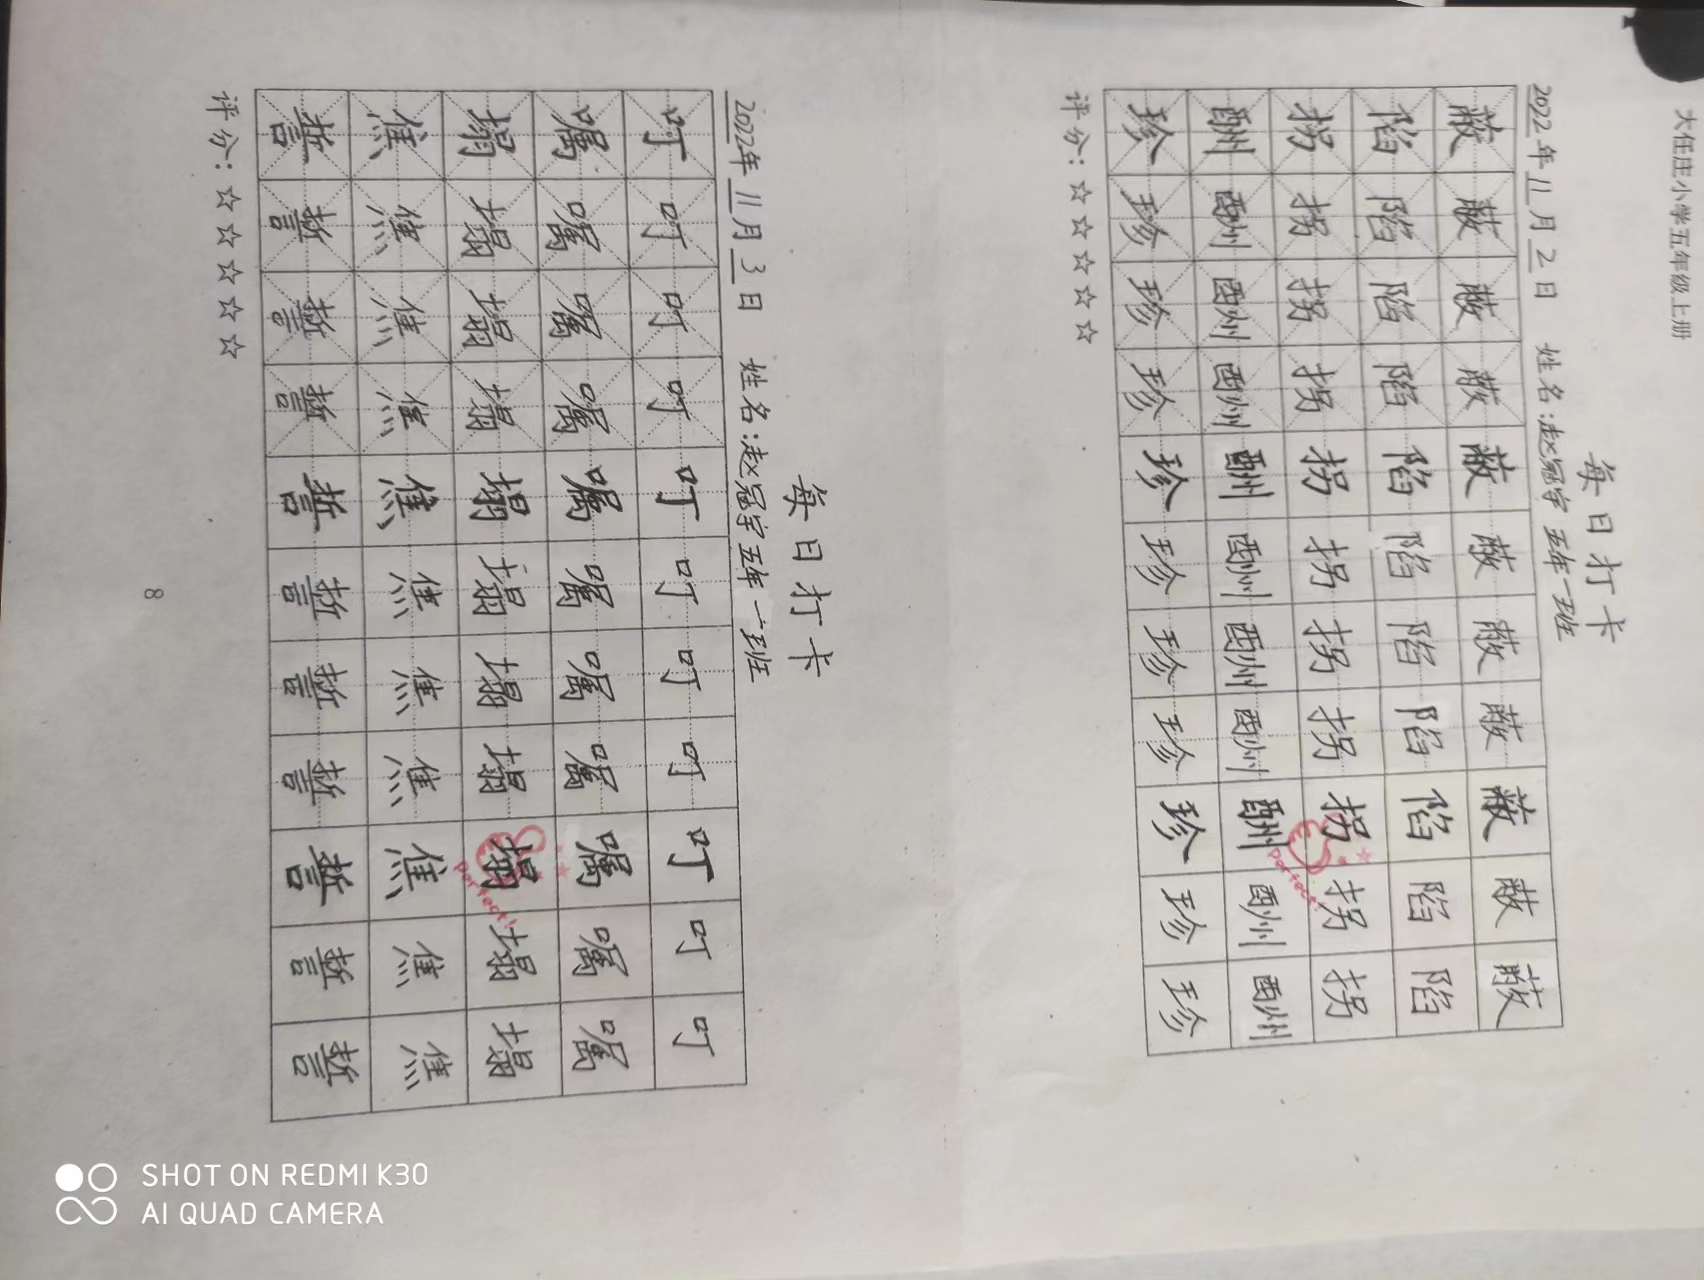 大任庄小学五年级上册
每日打卡
2022年11月2日 姓名:赵冠宇 五年一班
蔽蔽蔽蔽蔽蔽蔽蔽蔽蔽蔽
陷陷陷陷陷陷陷陷陷陷陷
拐拐拐拐拐拐拐拐拐拐拐
酬酬酬酬酬酬酬酬酬酬酬
珍珍珍珍珍珍珍珍珍珍珍
评分:☆☆☆☆☆
perfect!
每日打卡
2022年11月3日 姓名:赵冠宇 五年一班
叮叮叮叮叮叮叮叮叮叮叮
嘱嘱嘱嘱嘱嘱嘱嘱嘱嘱嘱
塌塌塌塌塌塌塌塌塌塌塌
焦焦焦焦焦焦焦焦焦焦焦
誓誓誓誓誓誓誓誓誓誓誓
评分:☆☆☆☆☆
perfect!
8
SHOT ON REDMI K30
AI QUAD CAMERA